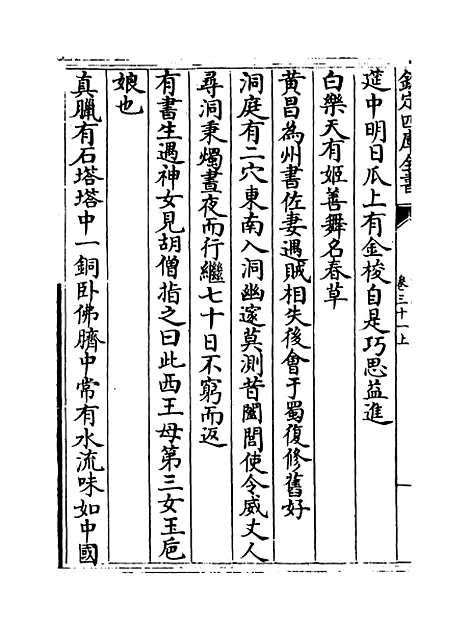 欽定四庫全書
卷三十一上
莚中明日瓜上有金梭自是巧思益進
白樂天有姬善舞名春草
黄昌為州書佐妻遇賊相失後會于蜀復修舊好
洞庭有二穴東南入洞幽邃莫測昔闔閭使令威丈人
尋洞秉燭晝夜而行繼七十日不窮而返
有書生遇神女見胡僧指之曰此西王母第三女玉巵
娘也
真臘有石塔塔中一銅臥佛臍中常有水流味如中國